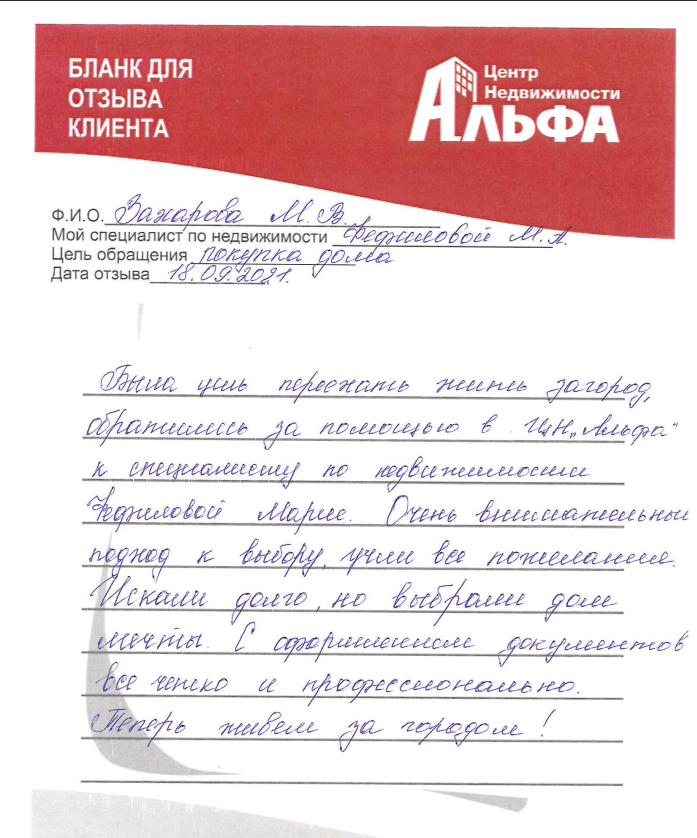 БЛАНК ДЛЯ
ОТЗЫВА
КЛИЕНТА
Центр
Недвижимости
АЛЬФА
Ф.И.О. Захарова М. В.
Мой специалист по недвижимости М. А.
Цель обращения покупка дома
Дата отзыва 18.09.2021.
Была цель переехать жить загород,
обратились за помощью в ЦН „Альфа“
к специалисту по недвижимости
Марие. Очень внимательный
подход к выбору, учли все пожелания.
Искали долго, но выбрали дом
мечты. С оформлением документов
все четко и профессионально.
Теперь живем за городом!